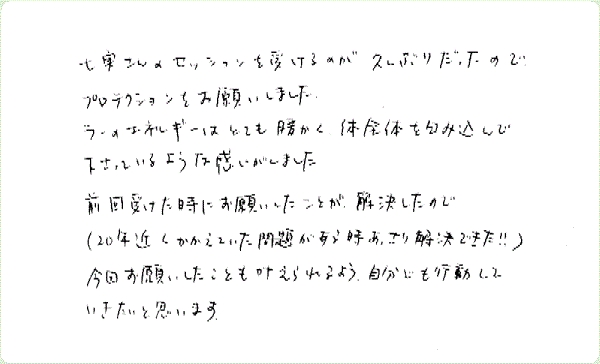 七実さんのセッションを受けるのが久しぶりだったので
プロテクションをお願いしました。
ラーのエネルギーはとても暖かく、体全体を包み込んで
下さっているような感じがしました
前回受けた時にお願いしたことが、解決したので
(20年近くかかえていた問題がある時あっさり解決できた!!)
今回お願いしたことも叶えられるよう、自分でも行動して
いきたいと思います。